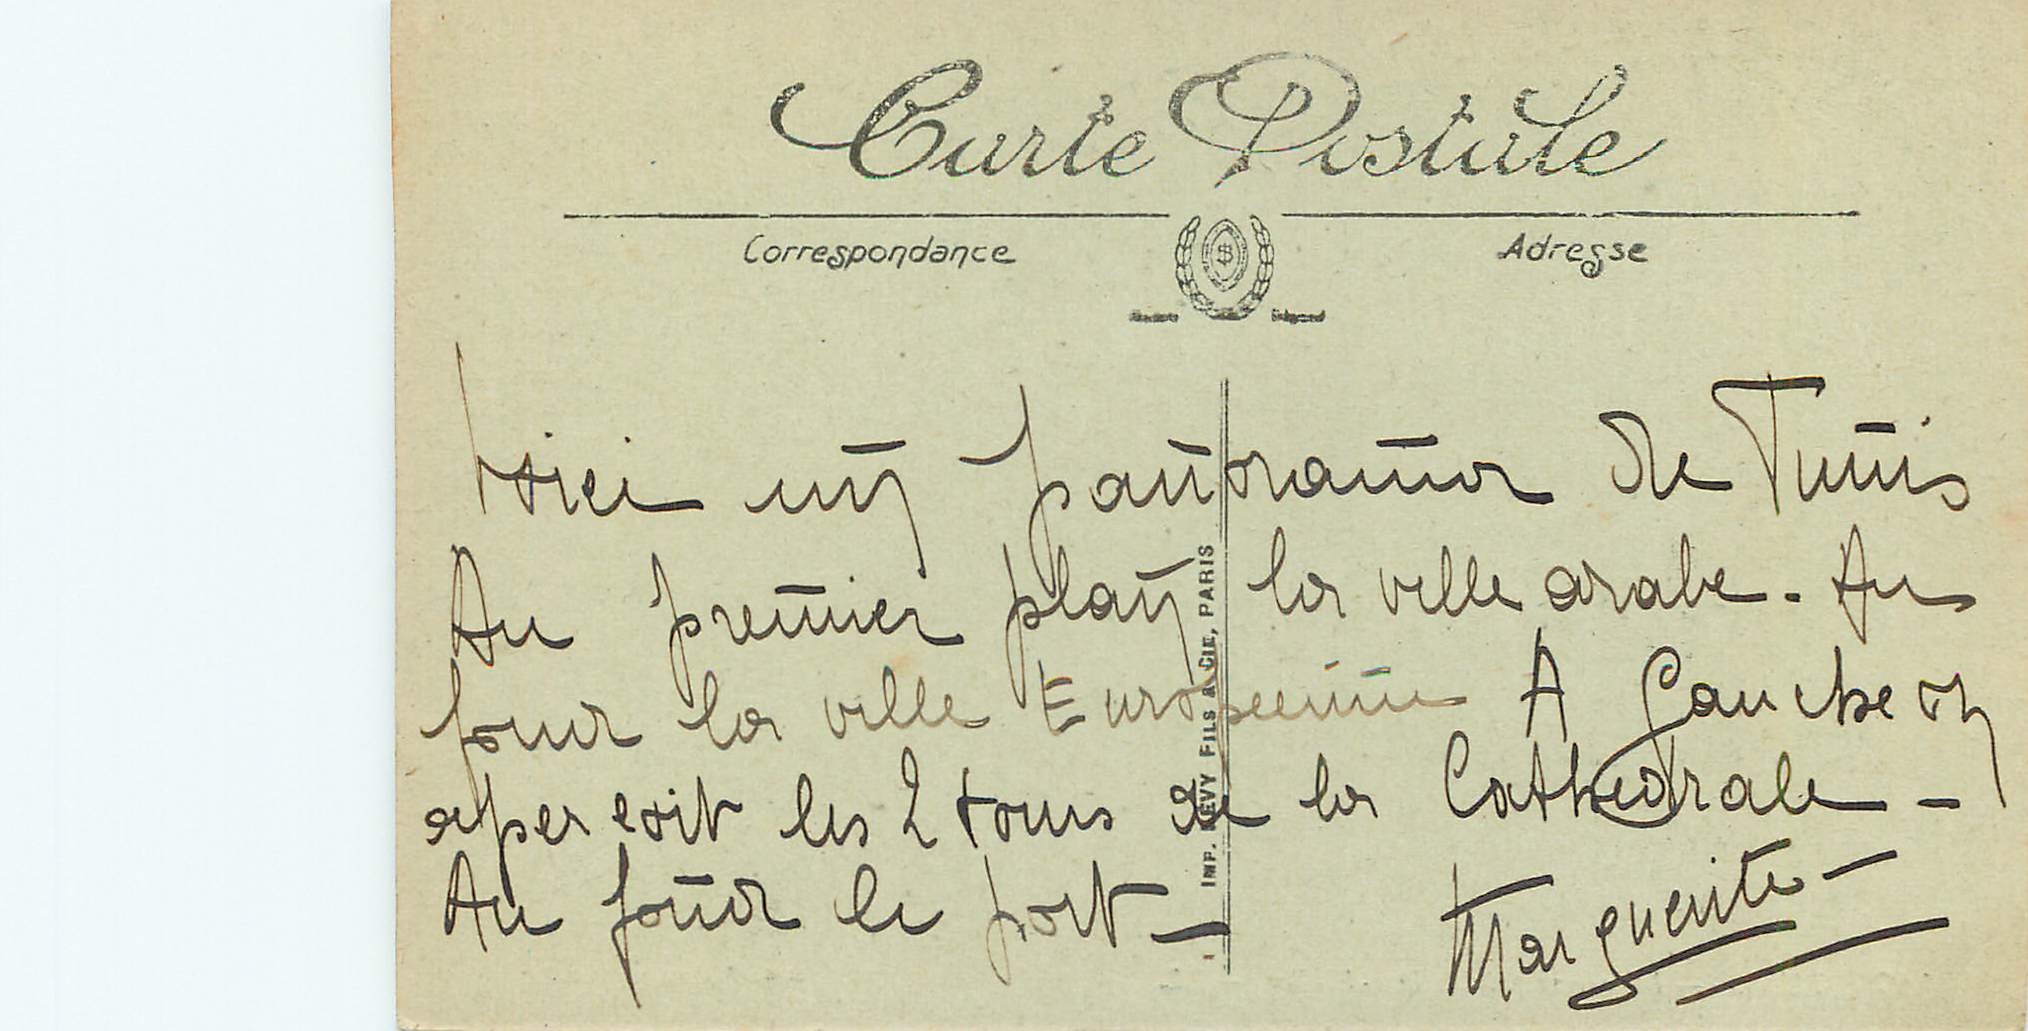 Carte Postale
Correspondance
Adresse
Voici un panorama de Tunis
Au premier plan la ville arabe. Au
fond la ville Européenne A Gauche on
aperçoit les 2 tours de la Cathédrale -
Au fond le port -
Marguerite -
IMP. LEVY FILS & CIE, PARIS